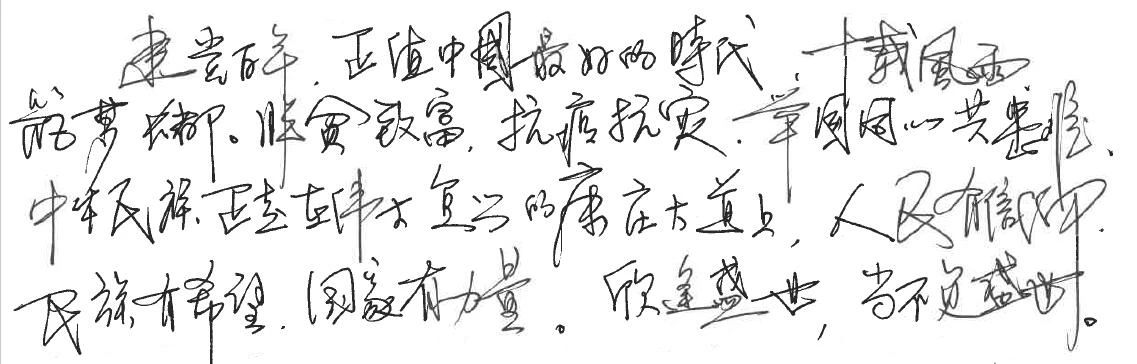 建党百年，正值中國最好的時代，十載風雨
筑夢成都。脱貧致富，抗疫抗灾，举国同心共患难，
中华民族正走在伟大复兴的康庄大道上，人民有信仰，
民族有希望，国家有力量。欣逢盛世，当不负盛世。